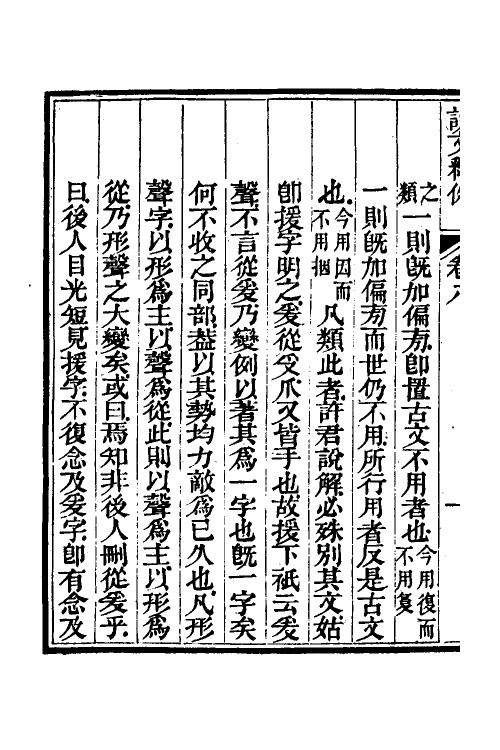 說文釋例 卷八 一
之類一則旣加偏㫄卽㯰古文不用者也今用復而不用㚆
一則旣加偏㫄而世仍不用所行用者反是古文
也今用因而不用捆凡類此者許君說解必殊別其文姑
卽援字明之爰從𠬪爪又皆手也故援下祇云爰
聲不言從爰乃變例以著其爲一字也旣一字矣
何不收之同部葢以其勢均力敵爲已久也凡形
聲字以形爲主以聲爲從此則以聲爲主以形爲
從乃形聲之大變矣或曰焉知非後人刪從爰乎
曰後人目光短見援字不復念及爰字卽有念及